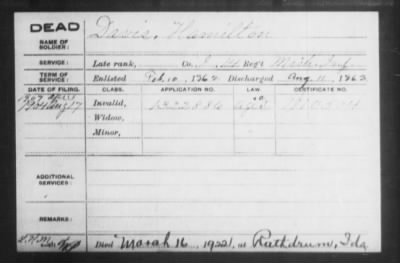 DEAD
NAME OF SOLDIER:
Davis, Hamilton
SERVICE: Late rank, Co. I, Regt Mich. Inf.
TERM OF SERVICE: Enlisted Feb. 10, 1862 Discharged Aug. 11, 1862
DATE OF FILING. CLASS. APPLICATION NO. LAW. CERTIFICATE NO.
Invalid, 1322886
Widow,
Minor,
ADDITIONAL SERVICES:
REMARKS:
Died March 16, 1922, at Rathdrum, Ida